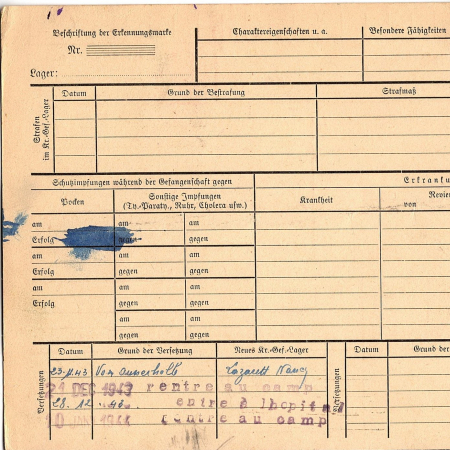 Beschriftung der Erkennungsmarke
Nr.
Lager:
Charaktereigenschaften u. a.
Besondere Fähigkeiten
Strafen
im Kr.-Gef.-Lager
Datum Grund der Bestrafung Strafmaß
Schutzimpfungen während der Gefangenschaft gegen
Erkranku
Pocken
Sonstige Impfungen
(Ty.-Paraty., Ruhr, Cholera usw.)
Krankheit
Revier
von
am am am
Erfolg gegen gegen
am am am
Erfolg gegen gegen
am am am
Erfolg gegen gegen
am am
gegen gegen
Versetzungen
Datum Grund der Versetzung Neues Kr.-Gef.-Lager
23.11.43 Von ausserhalb Lazarett
21 DEC 1943 rentre au camp
28. 12. 43 entre à lhopital
rentre au camp
Versetzungen
Datum Grund der